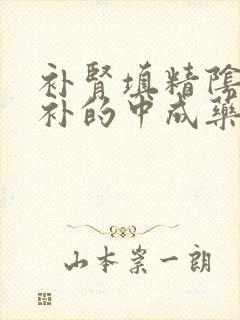 补腎填精陰
补的中成藥
山本崇一朗